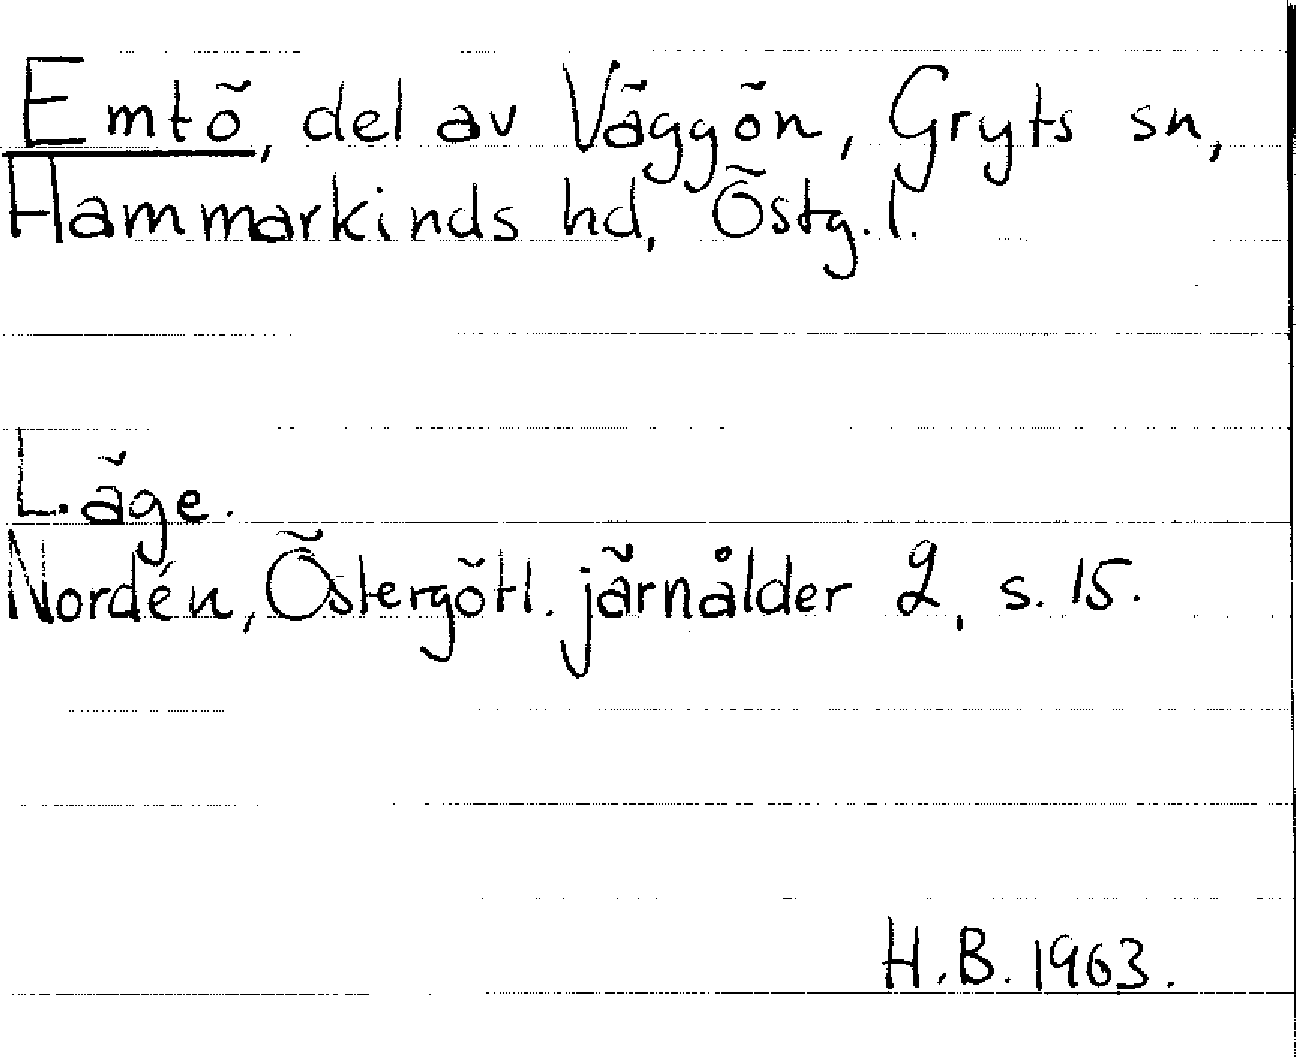 Emtö, del av Väggön, Gryts sn,
Hammarkinds hd, Östg.l.
Läge.
Nordén, Östergötl. järnålder 2, s. 15.
H.B. 1963.